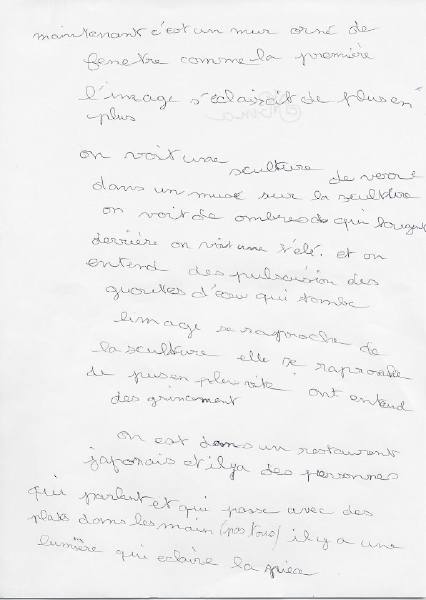 maintenant c'est un mur orné de
fenetre comme la première
l'image s'éclaircit de plus en
plus
on voit une sculture de verre
dans un musé sur la sculture
on voit de ombres de qui bougent
derrière on voit une télé. et on
entend des pulsassion des
gouttes d'eau qui tombe
l'image se raproche de
la sculture elle se raproche
de pus en plus vite ont entend
des grincement
on est dans un restaurant
japonais et il y a des personnes
qui parlent et qui passe avec des
plats dans les main (pas tous) il y a une
lumière qui eclaire la pièce